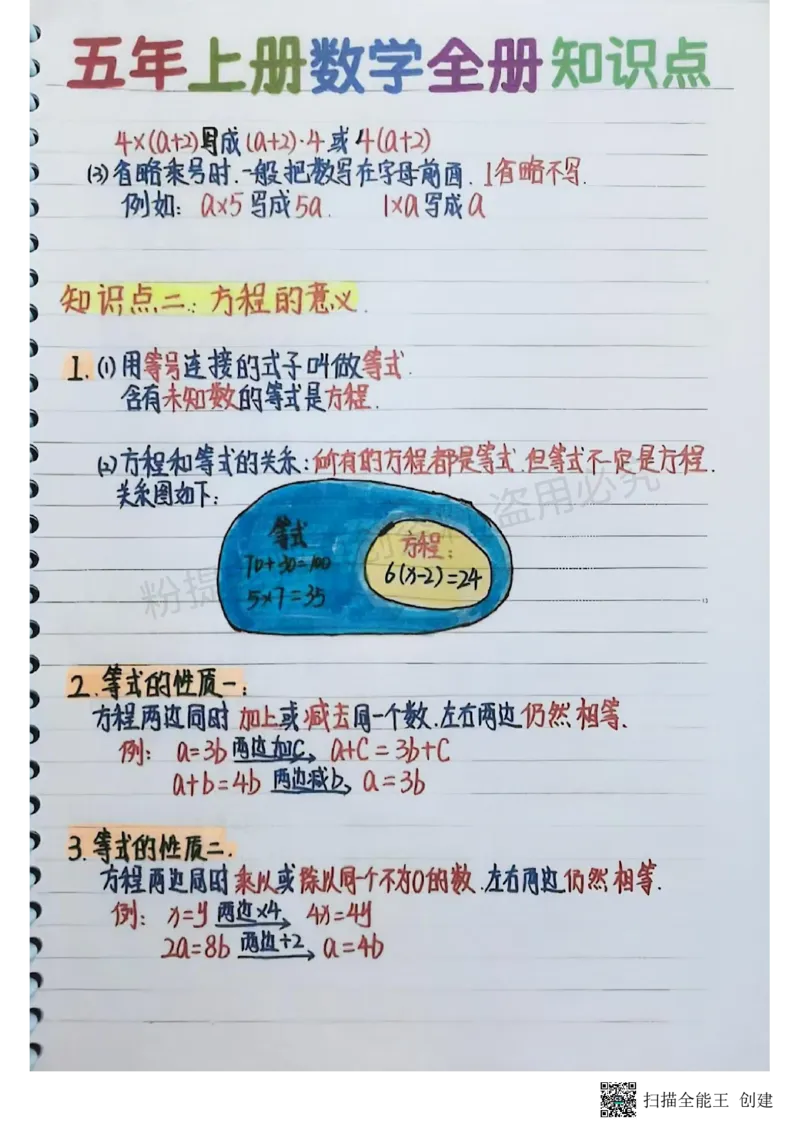 五年上册数学全册知识点
4×(a+2)写成(a+2)·4或4(a+2)
(3)省略乘号时.一般把数写在字母前面.1省略不写.
例如: a×5写成5a. 1×a写成a
知识点二:方程的意义.
1.(1)用等号连接的式子叫做等式.
含有未知数的等式是方程.
(2)方程和等式的关系:所有的方程都是等式.但等式不一定是方程.
关系图如下:
等式
70+30=100
5×7=35
方程:
6(x-2)=24
盗用必究
2.等式的性质一:
方程两边同时加上或减去同一个数.左右两边仍然相等.
例: a=3b 两边加C a+C=3b+C
a+b=4b 两边减b a=3b
3.等式的性质二.
方程两边同时乘以或除以同一个不为0的数.左右两边仍然相等.
例: x=y 两边×4 4x=4y
2a=8b 两边÷2 a=4b
扫描全能王 创建